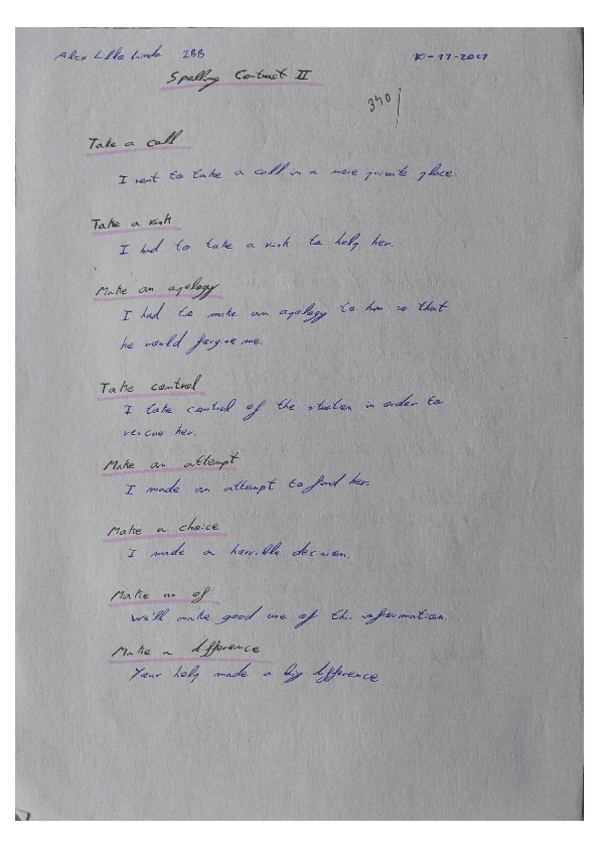 Alex 2BB 10-11-2021
Spelling Contract II
340
Take a call
I went to take a call in a more private place.
Take a risk
I had to take a risk to help her.
Make an apology
I had to make an apology to him so that
he would forgive me.
Take control
I take control of the situation in order to
rescue her.
Make an attempt
I made an attempt to find her.
Make a choice
I made a horrible decision.
Make us of
We'll make good use of this information.
Make a difference
Your help made a big difference